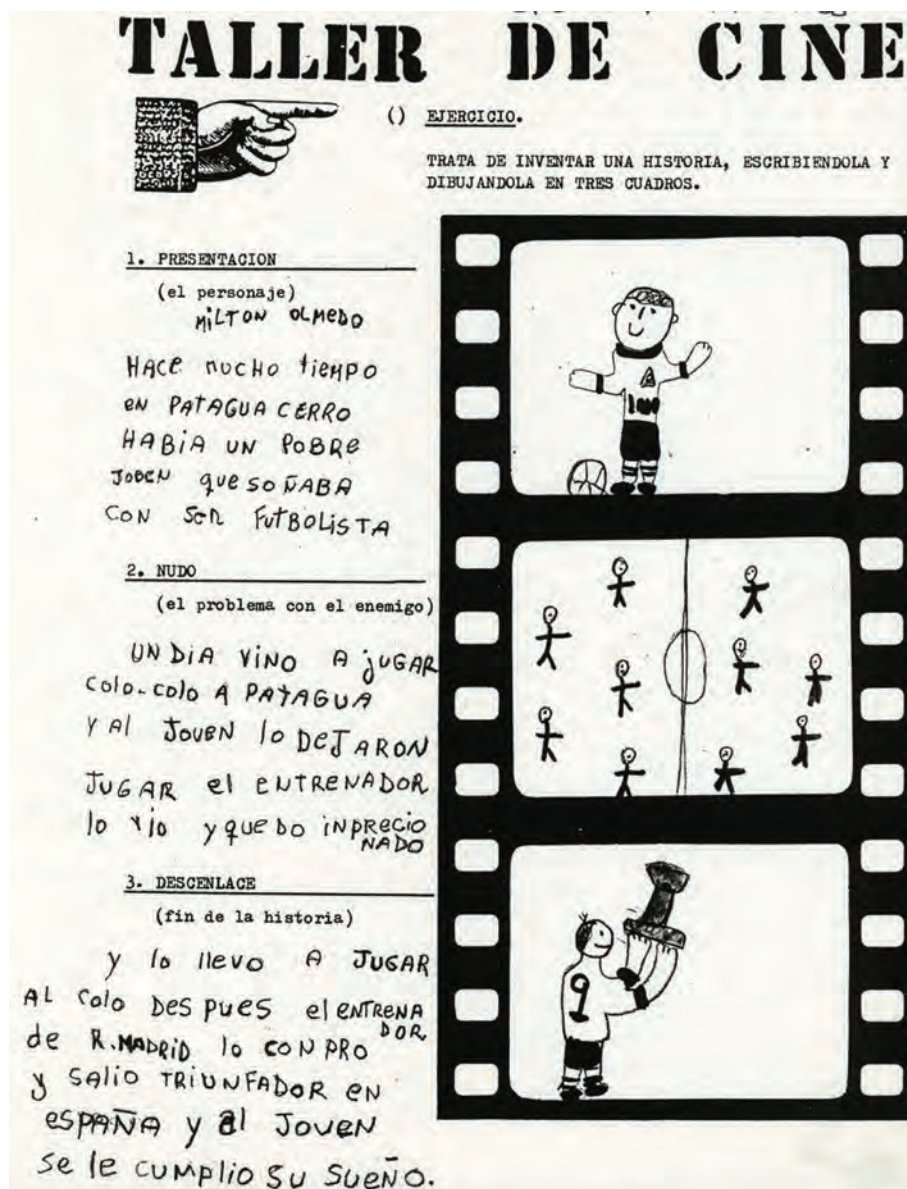 TALLER DE CINE
() EJERCICIO.
TRATA DE INVENTAR UNA HISTORIA, ESCRIBIENDOLA Y
DIBUJANDOLA EN TRES CUADROS.
1. PRESENTACION
(el personaje)
MiLTON OLMEDO
HACE nucHo tiEMPO
eN PATAGUA CERRO
HABiA UN PoBRe
JOBEN que SOÑABA
CON SER FutBOLisTA
2. NUDO
(el problema con el enemigo)
UN DiA ViNO A jUGAR
Colo-colo A PATAGUA
Y Al JOVEN lo DeJARON
JUGAR el ENTRENADOR
lo vio y queDo iNPRecio
NADO
3. DESCENLACE
(fin de la historia)
y lo llevo A JUGAR
AL Colo DES pues el ENTRENA
DOR
de R.MADRiD lo coN PRO
y SAlio TRiUNFADOR eN
eSPAÑA y al JOVEN
Se le CUMPlio SU SUEÑO.
9